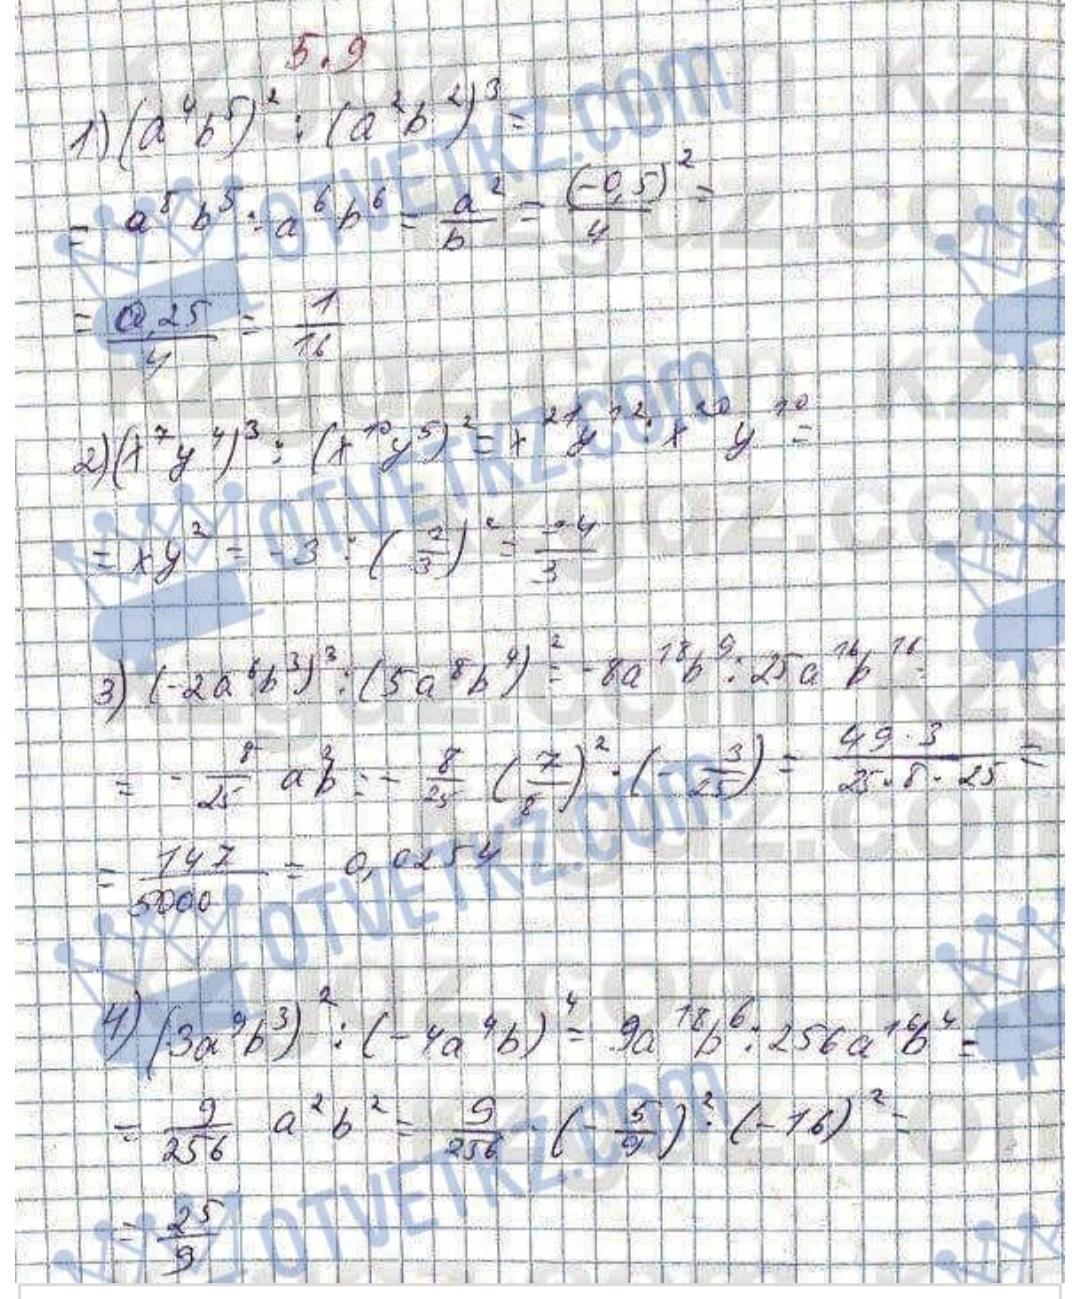 5.9
1) (a⁴b⁵)² : (a²b²)³ =
= a⁸b⁵ : a⁶b⁶ = a²/b = (-0,5)²/4 =
= 0,25/4 = 1/16
2) (x⁷y⁴)³ : (x¹⁰y⁵)² = x²¹y¹² : x²⁰y¹⁰ =
= xy² = -3 : (2/3)² = -4/3
3) (-2a⁶b³)³ : (5a⁸b⁴)² = -8a¹⁸b⁹ : 25a¹⁶b¹⁶ =
= - 8/25 a²b = - 8/25 (7/8)² · (- 3/25) = 49·3/25·8·25 =
= 147/5000 = 0,0254
4) (3a⁹b³)² : (-4a⁴b)⁴ = 9a¹⁸b⁶ : 256a¹⁶b⁴ =
= 9/256 a²b² = 9/256 · (- 5/9)² · (-16)² =
= 25/9
OTVETKZ.COM
kzgdz.com